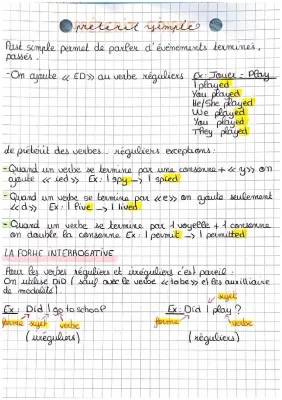 prétérit simple
Past simple permet de parler d'événements terminés,
passés.
-On ajoute << ED >> au verbe réguliers Ex: Jouer = Play
I played
You played
He/She played
We played
You played
They played
de prétérit des verbes réguliers exceptions:
-Quand un verbe se termine par une consonne + << y >> on
ajoute << ied >> Ex: I spy -> I spied
-Quand un verbe se termine par << e >> on ajoute seulement
<< d >> Ex: I live -> I lived
-Quand un verbe se termine par 1 voyelle + 1 consonne
on double la consonne Ex: I permit -> I permitted
LA FORME INTERROGATIVE
Pour les verbes réguliers et irréguliers c'est pareil:
On utilise DID ( sauf avec le verbe << to be >> et les auxilliaire
de modalité)
sujet
Ex: Did I go to school? Ex: Did I play?
forme sujet verbe forme verbe
(irréguliers) (réguliers)